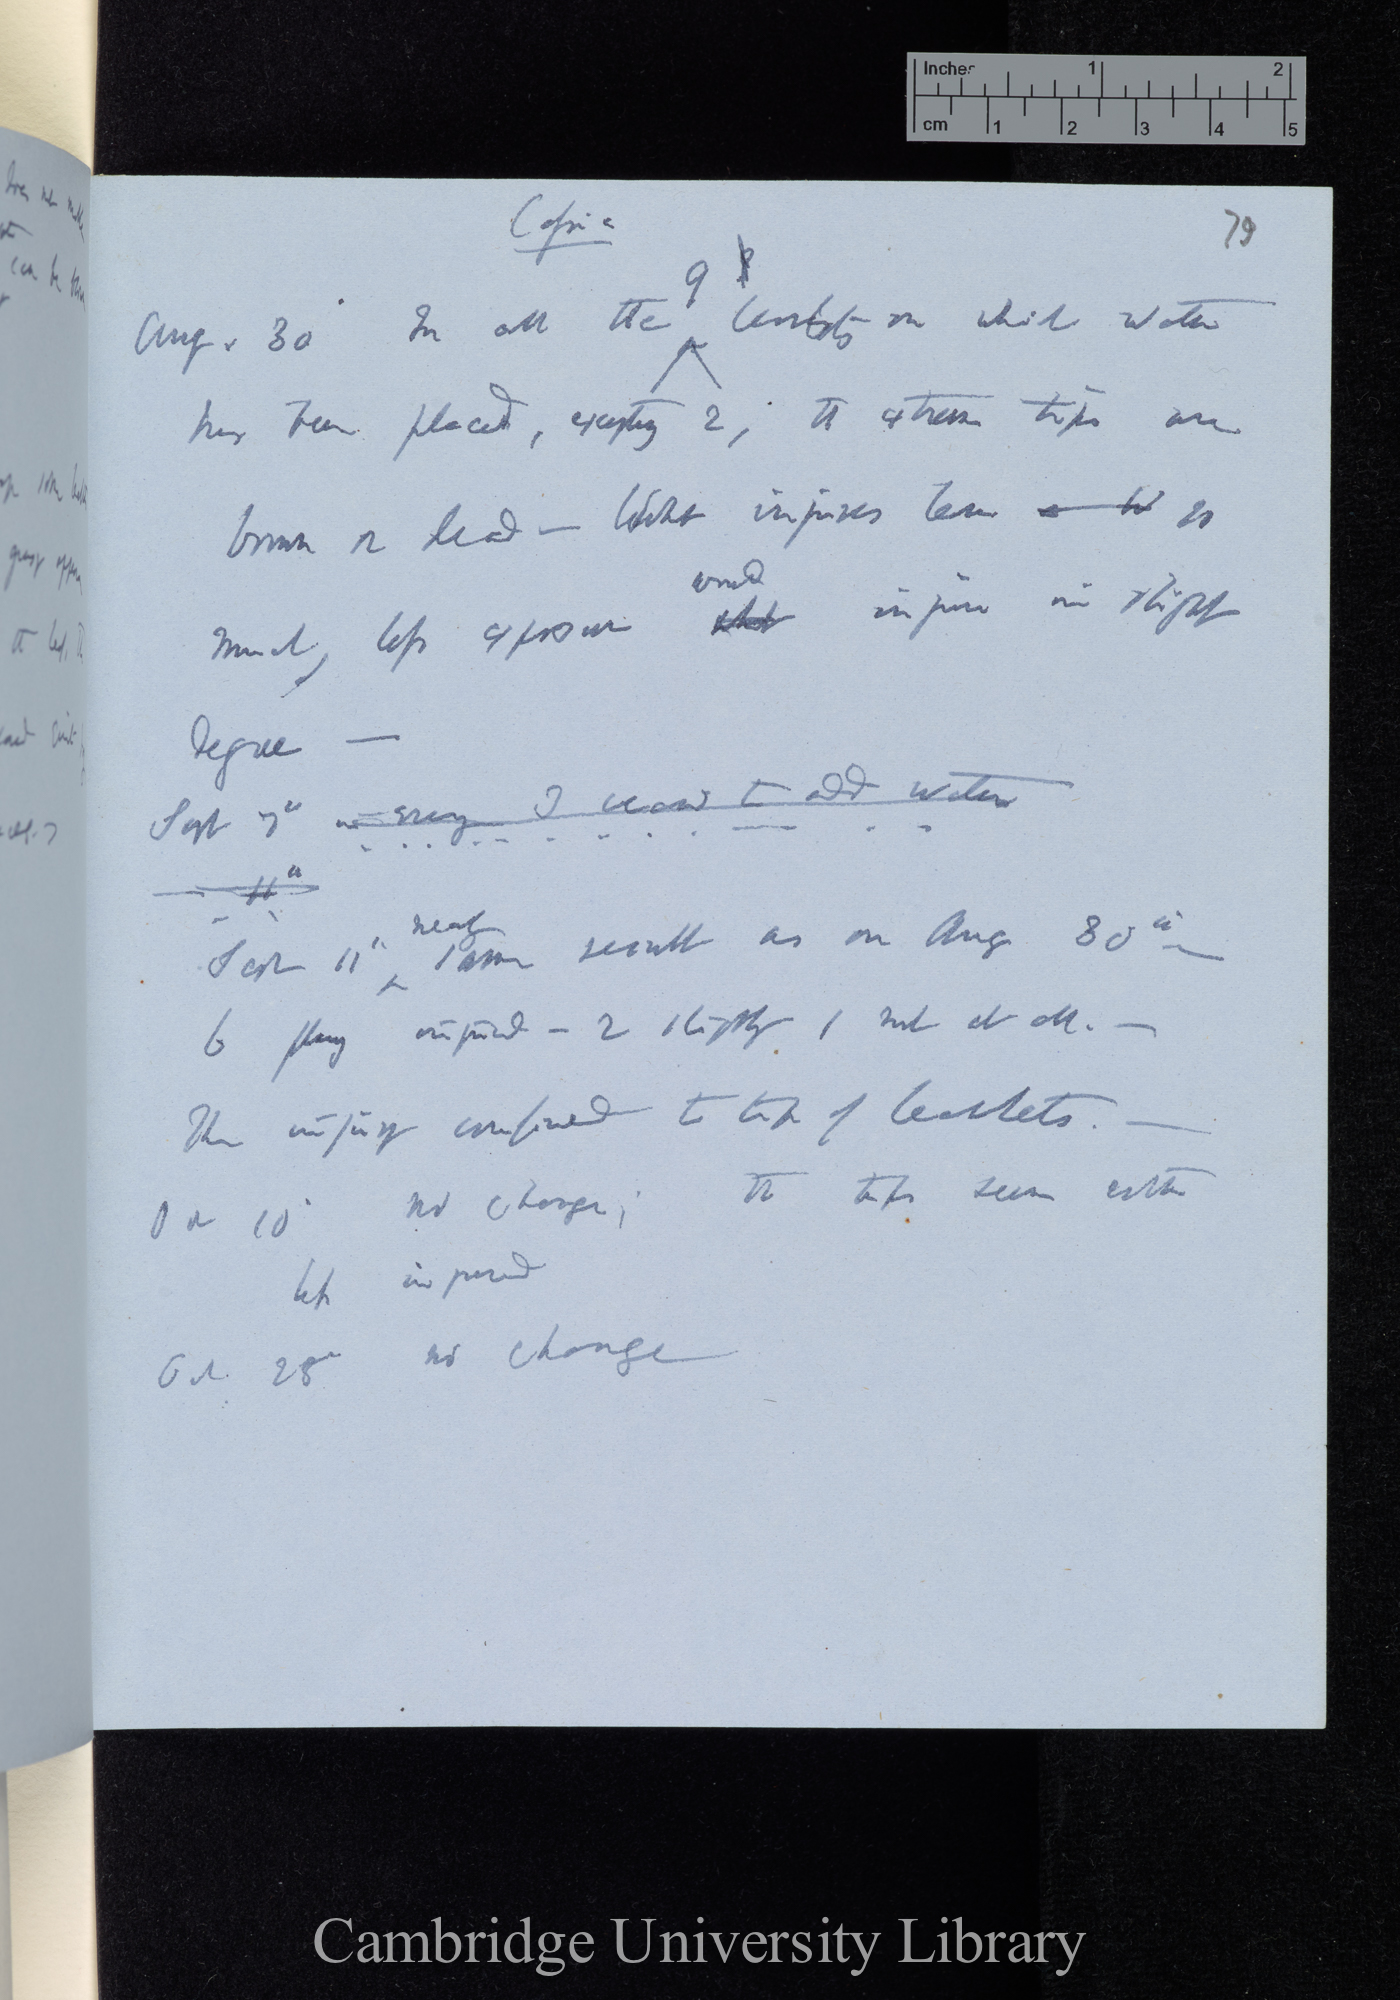 Inches 1 2
cm 1 2 3 4 5
79
Aug. 30 In all the 9 leaflets on which water
has been placed, excepting 2, the extreme tips are
brown or dead — what injures leaves so
much, less exposure would injure in slight
degree —
Sept 7th I ceased to add water
11th
Sept 11th nearly same result as on Aug 30th —
6 plainly injured — 2 slightly 1 not at all. —
The injury confined to tips of leaflets. —
Oct 10 no change; the tips seem rather
less injured
Oct. 28 no change
Cambridge University Library